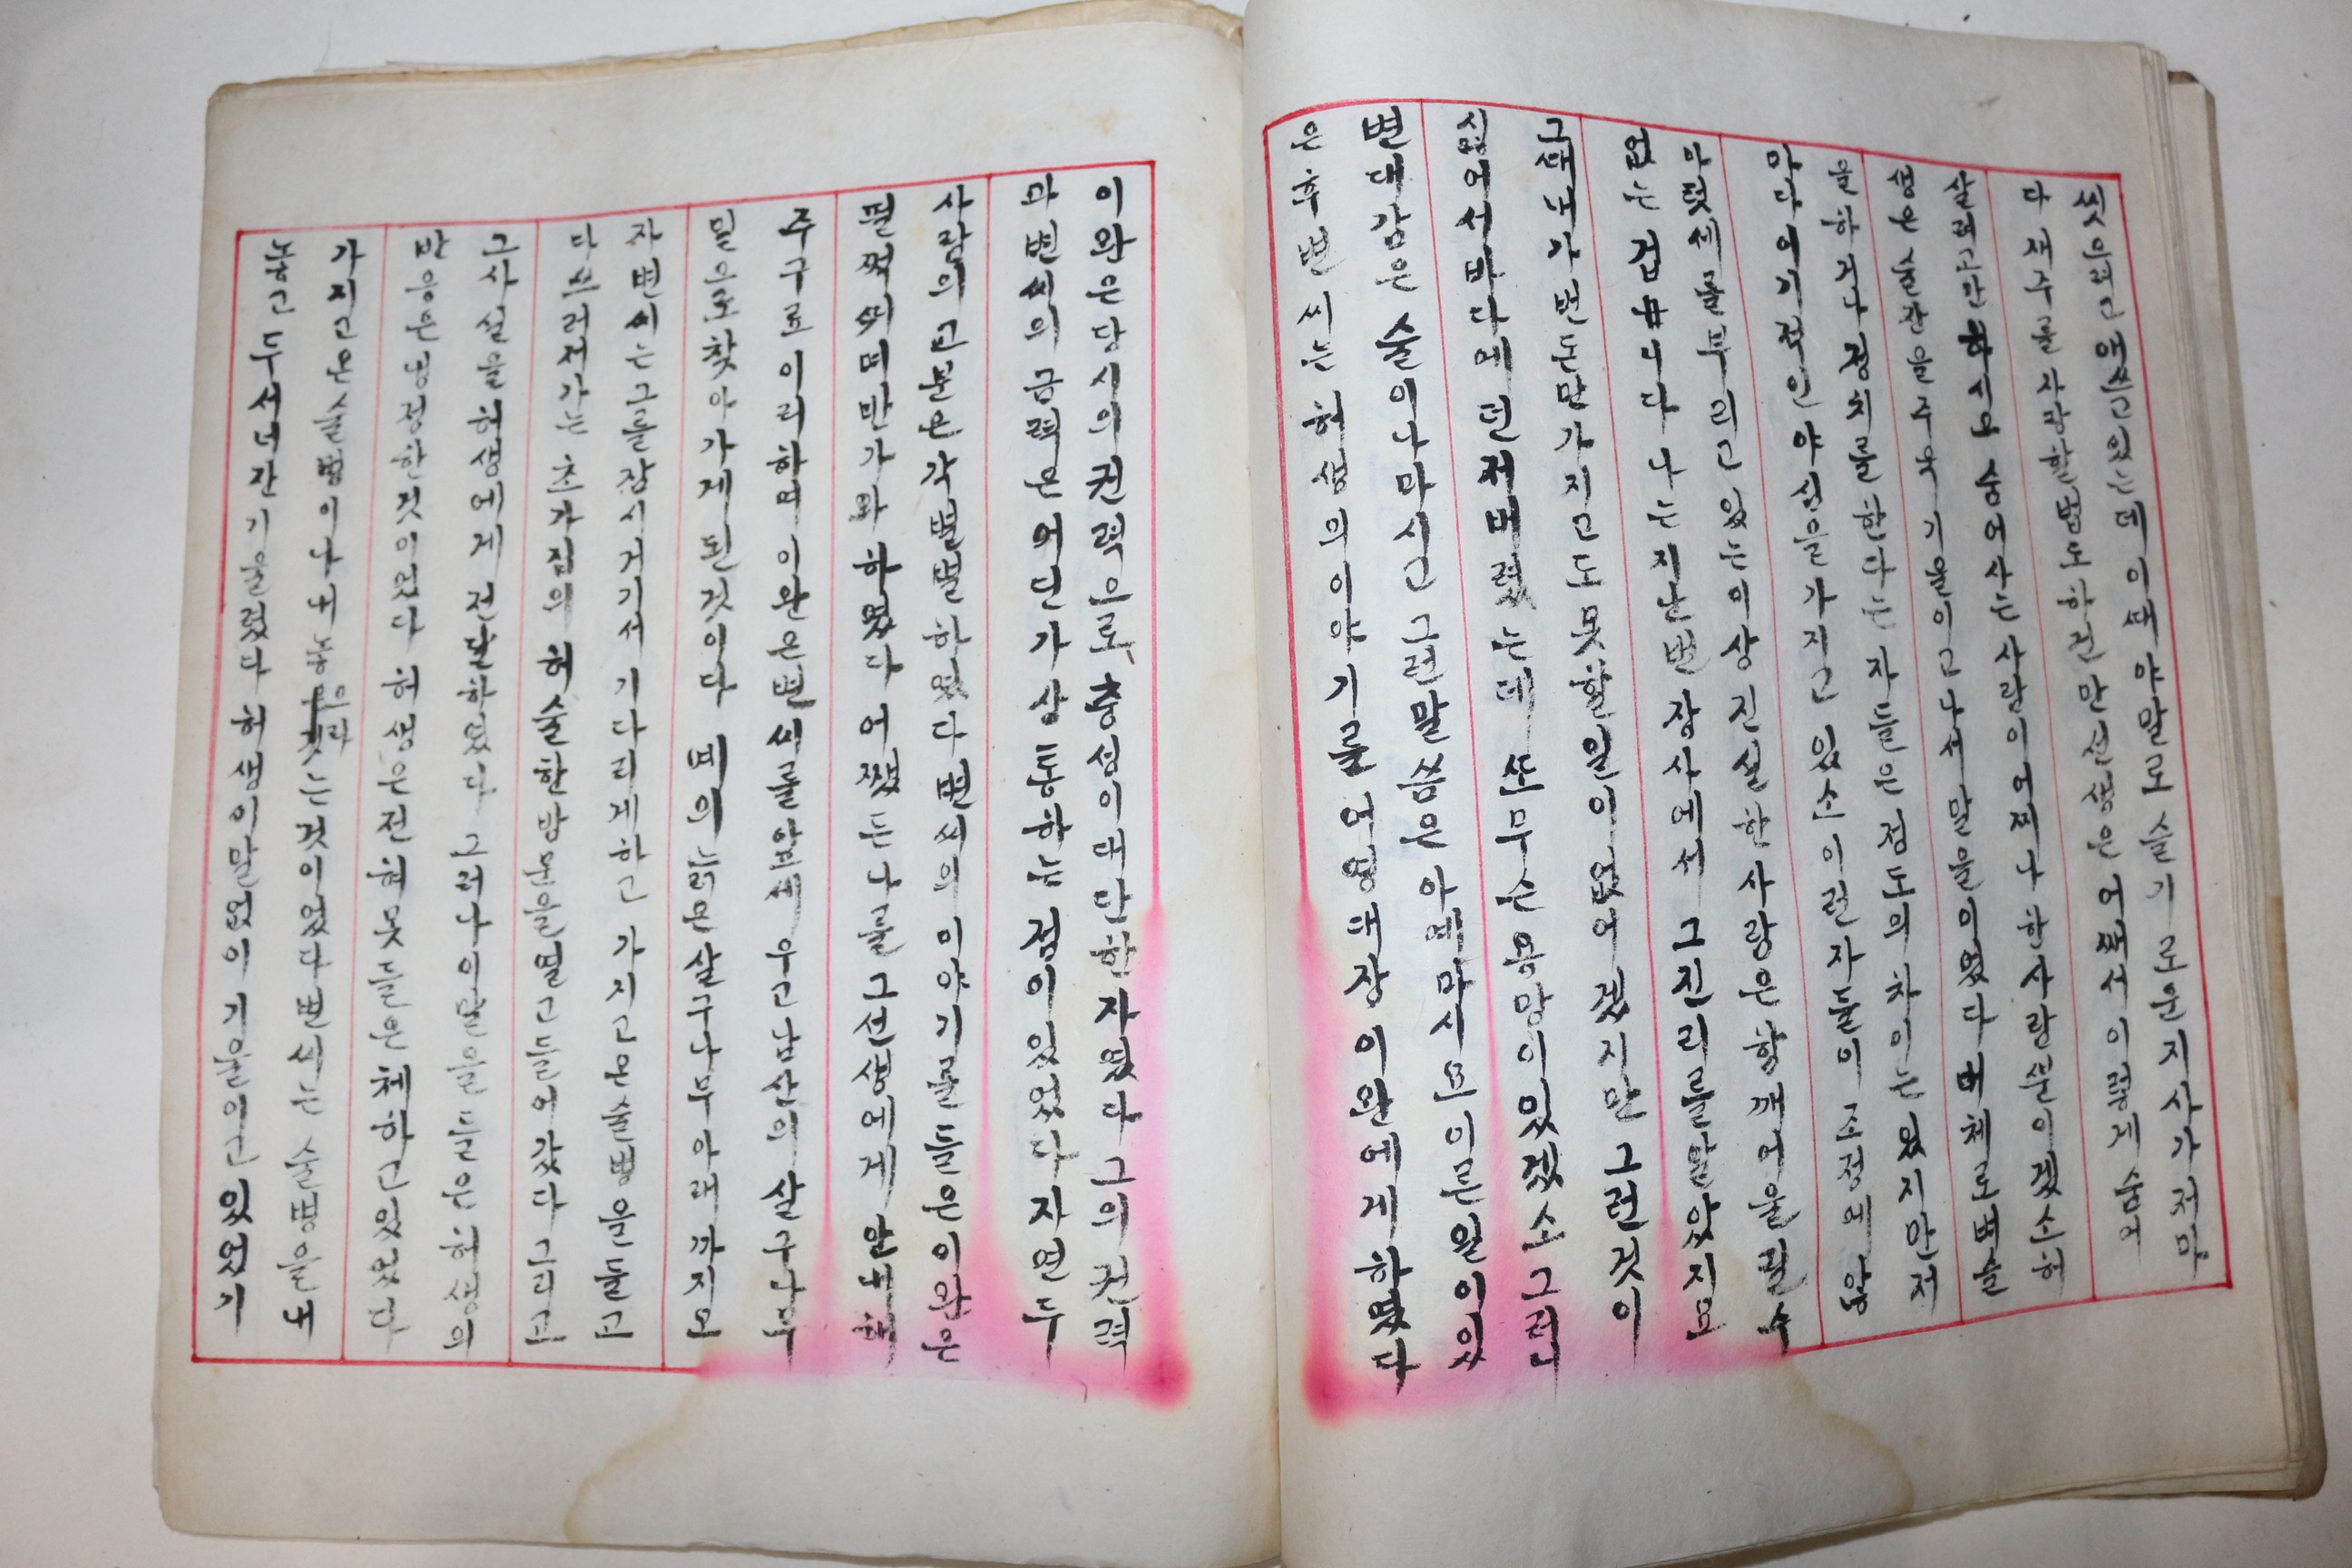 씻으려고 애쓰고있는데 이때야말로 슬기로운 지사가 저마
다 재주를 자랑할 법도 하건만 선생은 어째서 이렇게 숨어
살려고만 하시오 숨어사는 사람이 어찌 나 한사람뿐이겠소 허
생은 술잔을 주욱 기울이고 나서 말을이었다 대체로 벼슬
을하거나 정치를 한다는 자들은 정도의 차이는 있지만 저
마다 외기적인 야심을 가지고 있소 이런 자들이 조정에 왕
마렷세를 부리고 있는 이상 진실한 사람은 함께 어울릴수
없는 겁니다 나는 지난번 장사에서 그 진리를 알았지요
그때 내가 번돈만 가지고도 못할일이 없었겠지만 그런것이
싫어서 바다에 던져버렸는데 또 무슨 욕망이 있겠소 그러니
변대감은 술이나 마시고 그런 말씀은 아예 마시요 이른 일이 있
은 후 변씨는 허생의 이야기를 어영대장 이완에게 하였다
이완은 당시의 권력으로 충성이 대단한 자였다 그의 권력
과 변씨의 금력은 어딘가 상통하는 점이 있었다 자연 두
사람의 교분은 각별별하였다 변씨의 이야기를 들은 이완은
펄쩍 뛰며 반가와 하였다 어쨌든 나를 그 선생에게 안내해
주구료 이리하며 이완은 변씨를 앞세우고 남산의 살구나무
밑으로 찾아가게 된것이다 띠의 늙은 살구나무 아래까지 오
자 변씨는 그를 잠시 거기서 기다리게하고 가지고온 술병을 들고
다 쓰러져가는 초가집의 허술한 방문을 열고 들어갔다 그리고
그 사실을 허생에게 전달하였다 그러나 이 말을 들은 허생의
반응은 냉정한것이었다 허생은 전혀 못들은체하고 있었다
가지고온 술병이나 내놓으라는 것이었다 변씨는 술병을 내
놓고 두서너잔 기울렸다 허생이 말없이 기울이고 있었기